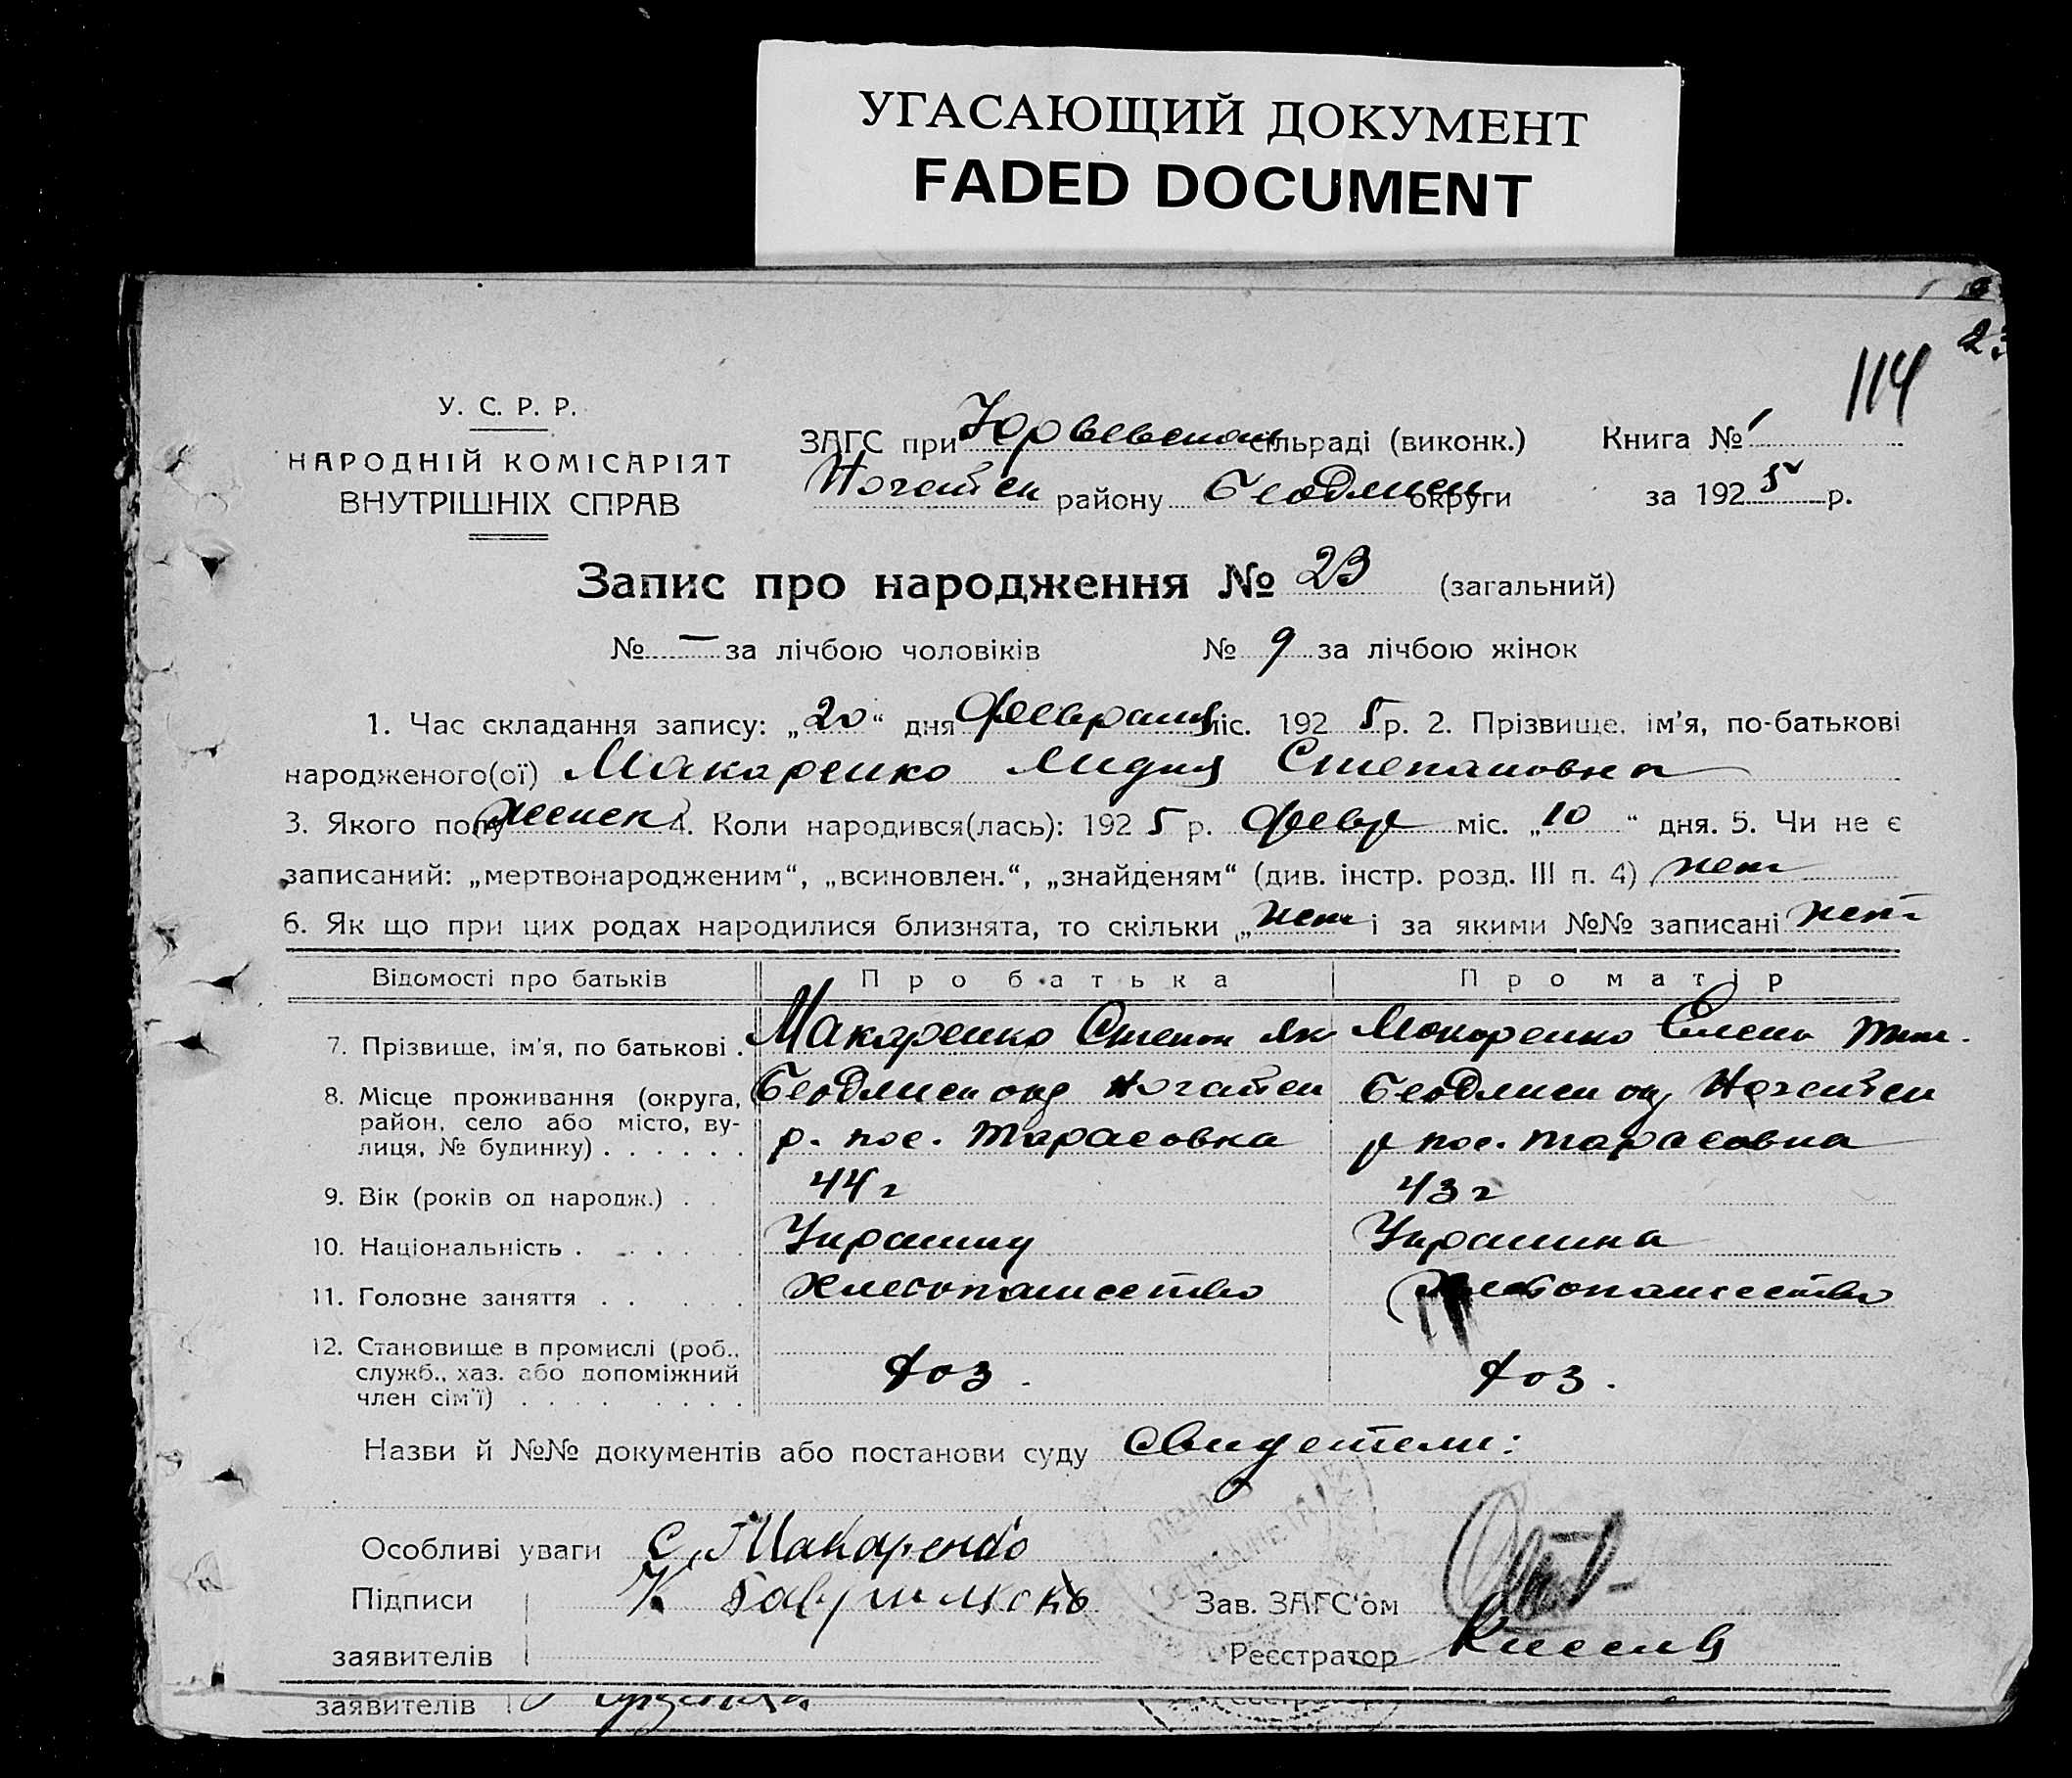 УГАСАЮЩИЙ ДОКУМЕНТ
FADED DOCUMENT
114
У. С. Р. Р.
НАРОДНІЙ КОМІСАРІЯТ
ВНУТРІШНІХ СПРАВ
ЗАГС при Юрьевском сільраді (виконк.)
району округи
Книга № 1
за 1925 р.
Запис про народження № 23 (загальний)
№ — за лічбою чоловіків № 9 за лічбою жінок
1. Час складання запису: „20“ дня февраля міс. 1925 р. 2. Прізвище, ім'я, по-батькові
народженого(ої) Макаренко Лидия Степановна
3. Якого полу женск 4. Коли народився(лась): 1925 р. февр міс. „10“ дня. 5. Чи не є
записаний: „мертвонародженим“, „всиновлен.“, „знайденям“ (див. інстр. розд. III п. 4) нет
6. Як що при цих родах народилися близнята, то скільки „нет і за якими №№ записані нет
Відомості про батьків Про батька Про матір
7. Прізвище, ім'я, по батькові . Макаренко Степан Як Макаренко Елена
8. Місце проживання (округа,
район, село або місто, ву-
лиця, № будинку) . . . . . . р. пос. Тарасовка р пос. Тарасовка
9. Вік (років од народж.) . . 44 г 43 г
10. Національність . . . . . Украинц Украинка
11. Головне заняття . . . . . хлебопашество хлебопашество
12. Становище в промислі (роб.,
служб., хаз. або допоміжний
член сім'ї) . . . . . . . . хоз. хоз.
Назви й №№ документів або постанови суду Свидетели:
Особливі уваги С. Макаренко
Підписи К
заявителів
Зав. ЗАГС'ом
Реєстратор
заявителів